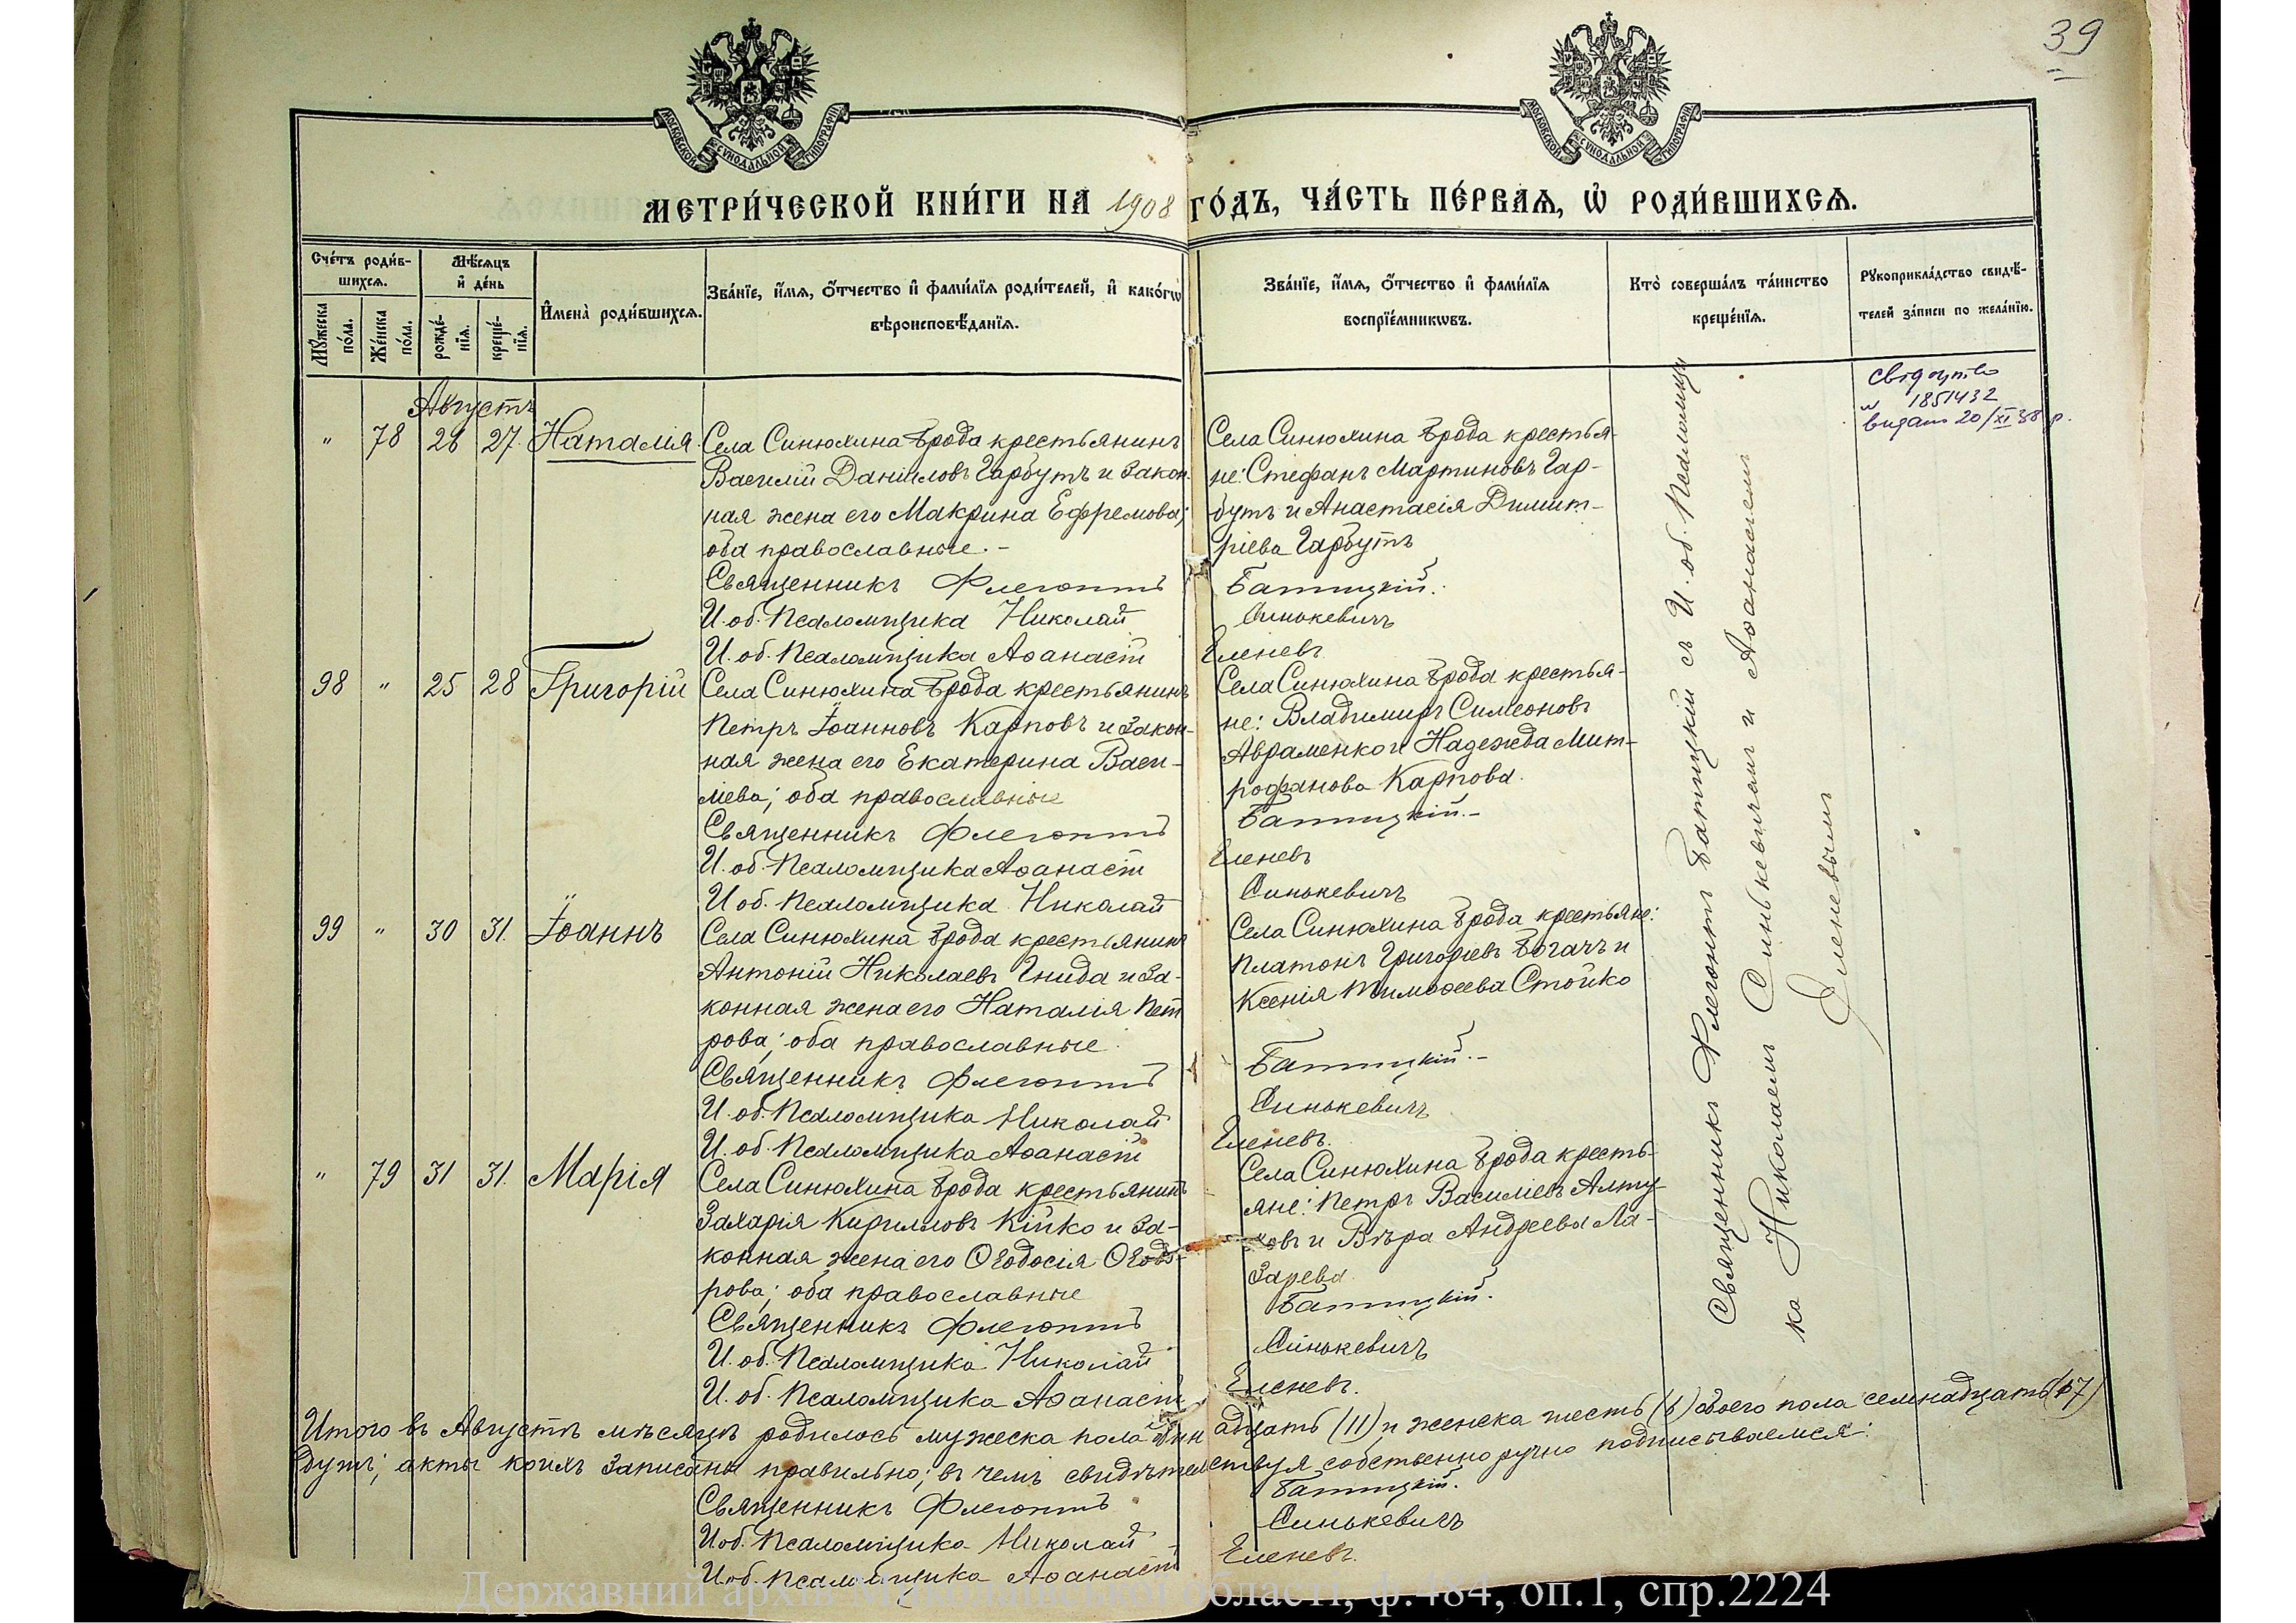 39
МОСКОВСКОЙ СУНОДАЛЬНОЙ ТИПОГРАФІИ
МОСКОВСКОЙ СУНОДАЛЬНОЙ ТИПОГРАФІИ
МЕТРИ́ЧЕСКОЙ КНИ́ГИ НА 1908 ГО́ДЪ, ЧА́СТЬ ПЕ́РВАѦ, Ѡ҆ РОДИ́ВШИХСѦ.
Сче́тъ роди́в-
шихсѧ.
Мꙋ́жеска
по́ла.
Же́нска
по́ла.
Мѣ́сѧцъ
и҆ де́нь
рожде́-
нїѧ.
креще́-
нїѧ.
И҆мена̀ роди́вшихсѧ.
Зва́нїе, и҆́мѧ, ѻ҆́тчество и҆ фами́лїѧ роди́телей, и҆ како́гѡ
вѣроисповѣ́данїѧ.
Зва́нїе, и҆́мѧ, ѻ҆́тчество и҆ фами́лїѧ
воспрїе́мникѡвъ.
Кто̀ соверша́лъ та́инство
креще́нїѧ.
Рꙋкоприкла́дство свидѣ́-
телей за́писи по жела́нїю.
Августъ
" 78 26 27 Наталія.
Села Синюхина Брода крестьянинъ
Василій Даніиловъ Гарбутъ и закон-
ная жена его Макрина Ефремова;
оба православные.-
Священникъ Флегонтъ
И. об. Псаломщика Николай
И. об. Псаломщика Аѳанасій
Села Синюхина Брода крестья-
не: Стефанъ Мартиновъ Гар-
бутъ и Анастасія Димит-
ріева Гарбутъ
Батицкій.
Синькевичъ
Еленевъ
Свідоцтво
№ 1851432
видано 20/XI 38 р.
98 " 25 28 Григорій
Села Синюхина Брода крестьянинъ
Петръ Іоанновъ Карповъ и закон-
ная жена его Екатерина Васи-
ліева; оба православные
Священникъ Флегонтъ
И. об. Псаломщика Аѳанасій
И об. Псаломщика Николай
Села Синюхина Брода крестья-
не: Владимиръ Симеоновъ
Авраменко и Надежда Мит-
рофанова Карпова.
Батицкій.-
Еленевъ
Синькевичъ
99 " 30 31. Іоаннъ
Села Синюхина Брода крестьянинъ
Антоній Николаевъ Гнида и за-
конная жена его Наталія Пет
рова; оба православные
Священникъ Флегонтъ
И. об. Псаломщика Николай
И. об. Псаломщика Аѳанасій
Села Синюхина Брода крестьяне:
Платонъ Григоріевъ Богачъ и
Ксенія Тимоѳеева Стойко
Батицкій.-
Синькевичъ
Еленевъ.
" 79 31 31. Марія
Села Синюхина Брода крестьянинъ
Захарія Кирилловъ Кійко и за-
конная жена его Ѳеодосія Ѳеодо-
рова; оба православные
Священникъ Флегонтъ
И. об. Псаломщика Николай
И. об. Псаломщика Аѳанасій
Села Синюхина Брода кресть-
яне: Петръ Василіевъ Алту-
ховъ и Вѣра Андреева Ла-
зарева
Батицкій.
Синькевичъ
Еленевъ.
Священникъ Флегонтъ Батицкій съ И. об. Псаломщи
ка Николаемъ Синькевичемъ и Аѳанасіемъ
Еленевымъ
Итого въ Августѣ мѣсяцѣ родилось мужеска пола один адцать (11) и женска шесть (6) обоего пола семнадцать (17)
душъ; акты коихъ записаны правильно; въ чемъ свидѣтельствуя собственноручно подписываемся:
Священникъ Флегонтъ Батицкій.
И об. Псаломщика Николай Синькевичъ
И. об. Псаломщика Аѳанасій Еленевъ.
Державний архів Миколаївської області, ф.484, оп.1, спр.2224